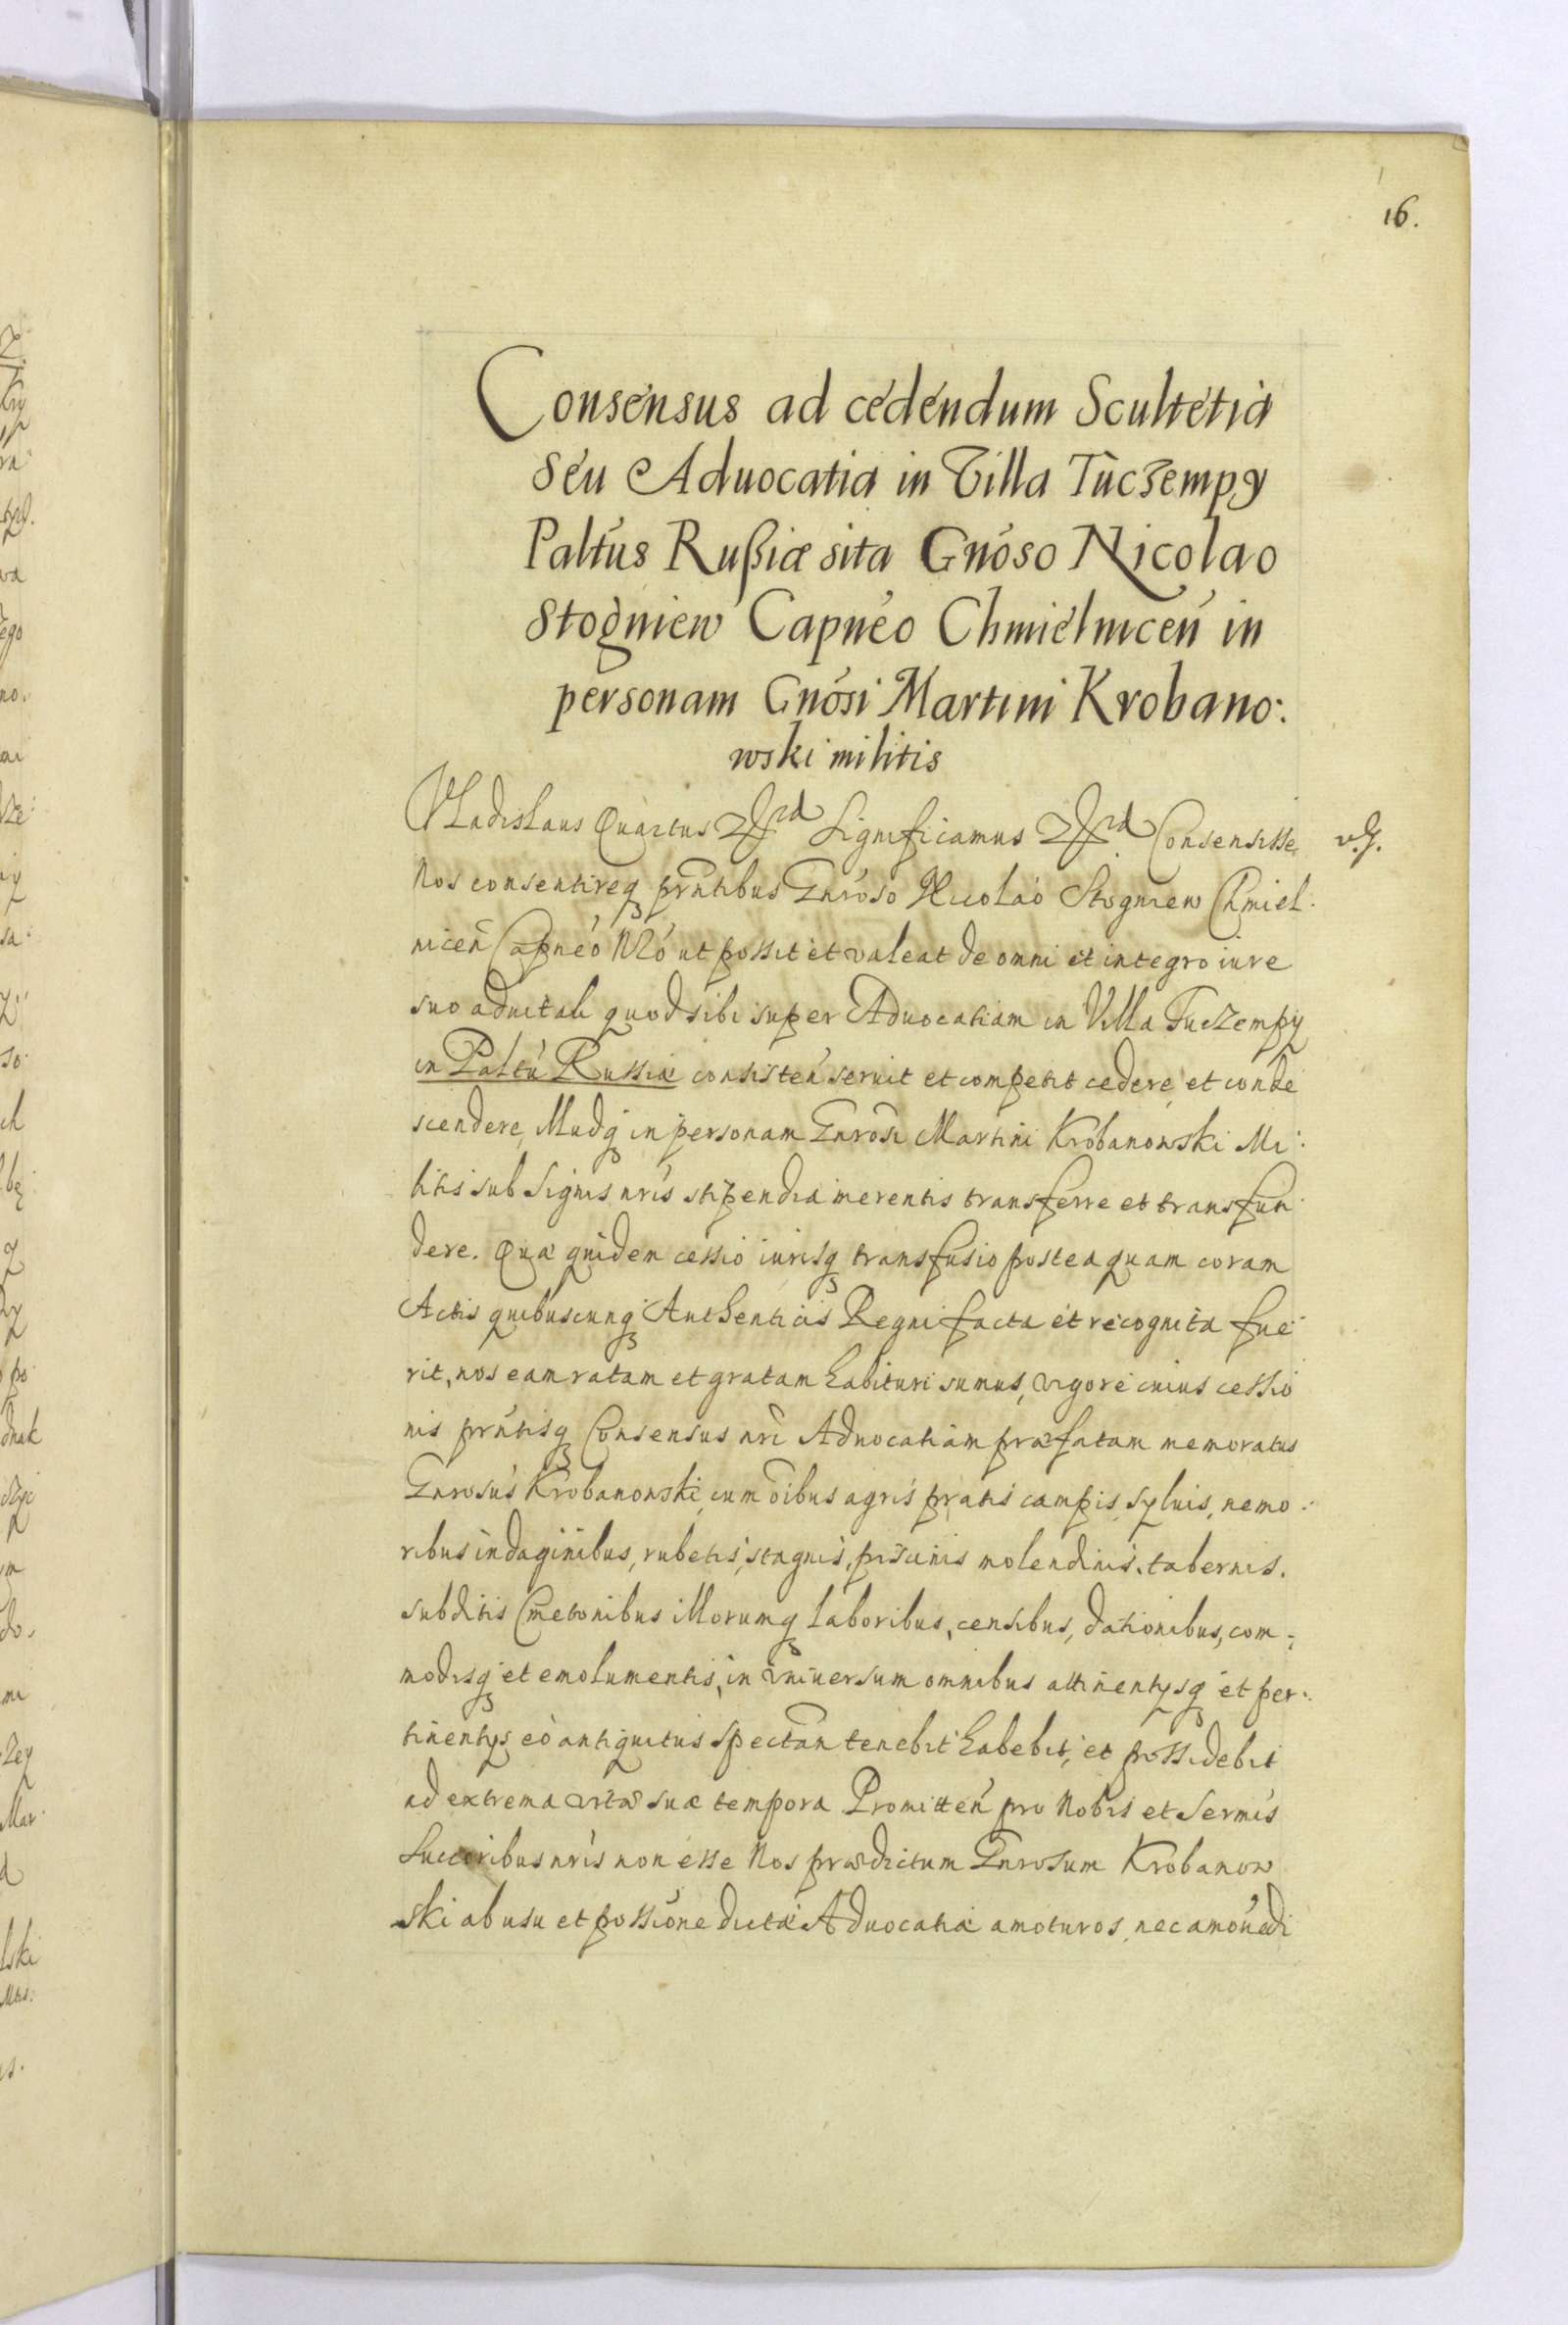 16.
Consensus ad cedendum Scultetia
seu Aduocatia in Villa Tuczempy
Paltus Rußiæ sita Gnoso Nicolao
Stogniew Capneo Chmielnicen in
personam Gnosi Martini Krobano:
wski militis
Vladislaus Quartus Significamus Consensisse
Nos consentireq prntibus Gnroso Nicolao Stogniew Chmiel:
nicen Capneo Nro ut possit et valeat de omni et integro iure
suo aduitali quod sibi super Aduocatiam in Villa Tuczempy
in Paltu Russiæ consisten seruit et competit cedere et conde
scendere, Illudq in personam Gnrosi Martini Krobanowski Mi:
litis sub Signis nris stipendia merentis transferre et transfun
dere. Quæ quidem cessio iurisq transfusio posteaquam coram
Actis quibuscunq Authenticis Regni facta et recognita fue
rit, nos eam ratam et gratam habituri sumus, vigore cuius cessio
nis prntisq Consensus nri Aduocatiam præfatam memoratus
Gnrosus Krobanowski, cum oibus agris pratis campis, syluis, nemo:
ribus indaginibus, rubetis, stagnis, piscinis molendinis, tabernis.
subditis Cmetonibus illorumq laboribus, censibus, dationibus, com:
modisq et emolumentis, in vniuersum omnibus attinentysq et per:
tinentys eo antiquitus spectan tenebit habebit, et possidebit
ad extrema vitæ suæ tempora Promitten pro Nobis et Sermis
Succoribus nris non esse Nos prædictum Gnrosum Krobanow
ski ab usu et possione dictæ Aduocatiæ amoturos, nec amouedi